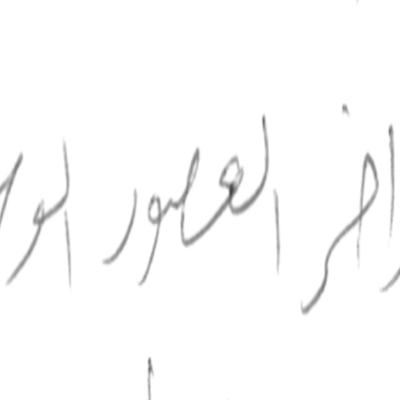 اخر العصور الو